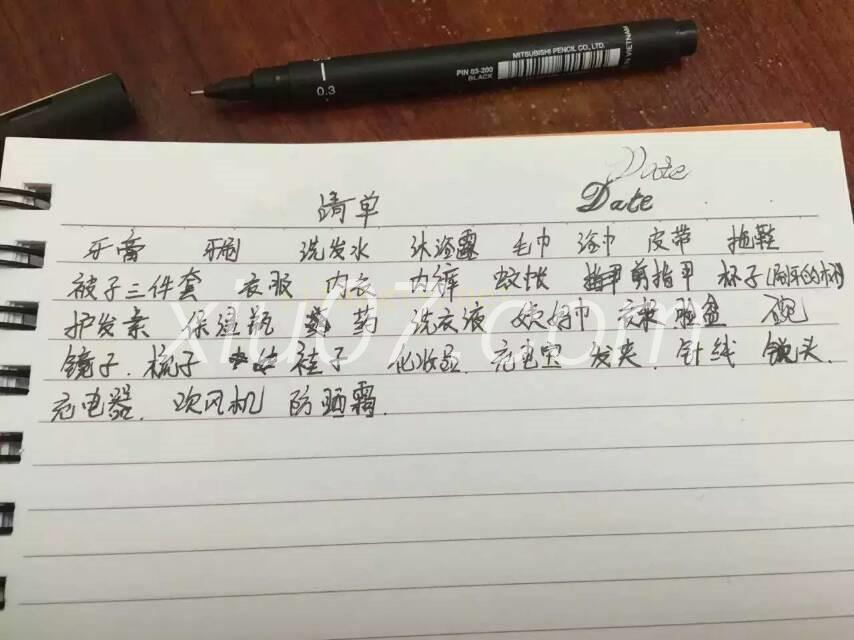 MITSUBISHI PENCIL CO., LTD.
PIN 03-200
BLACK
VIETNAM
0.3
Date
清单 Date
牙膏 牙刷 洗发水 沐浴露 毛巾 浴巾 皮带 拖鞋
被子三件套 衣服 内衣 内裤 蚊帐 剪指甲 杯子
护发素 保湿瓶 药 洗衣液 姨妈巾 衣架 脸盆 碗
镜子. 梳子 袜子 化妆品. 充电宝 发夹. 针线 镜头.
充电器. 吹风机 防晒霜.
xiu07.com